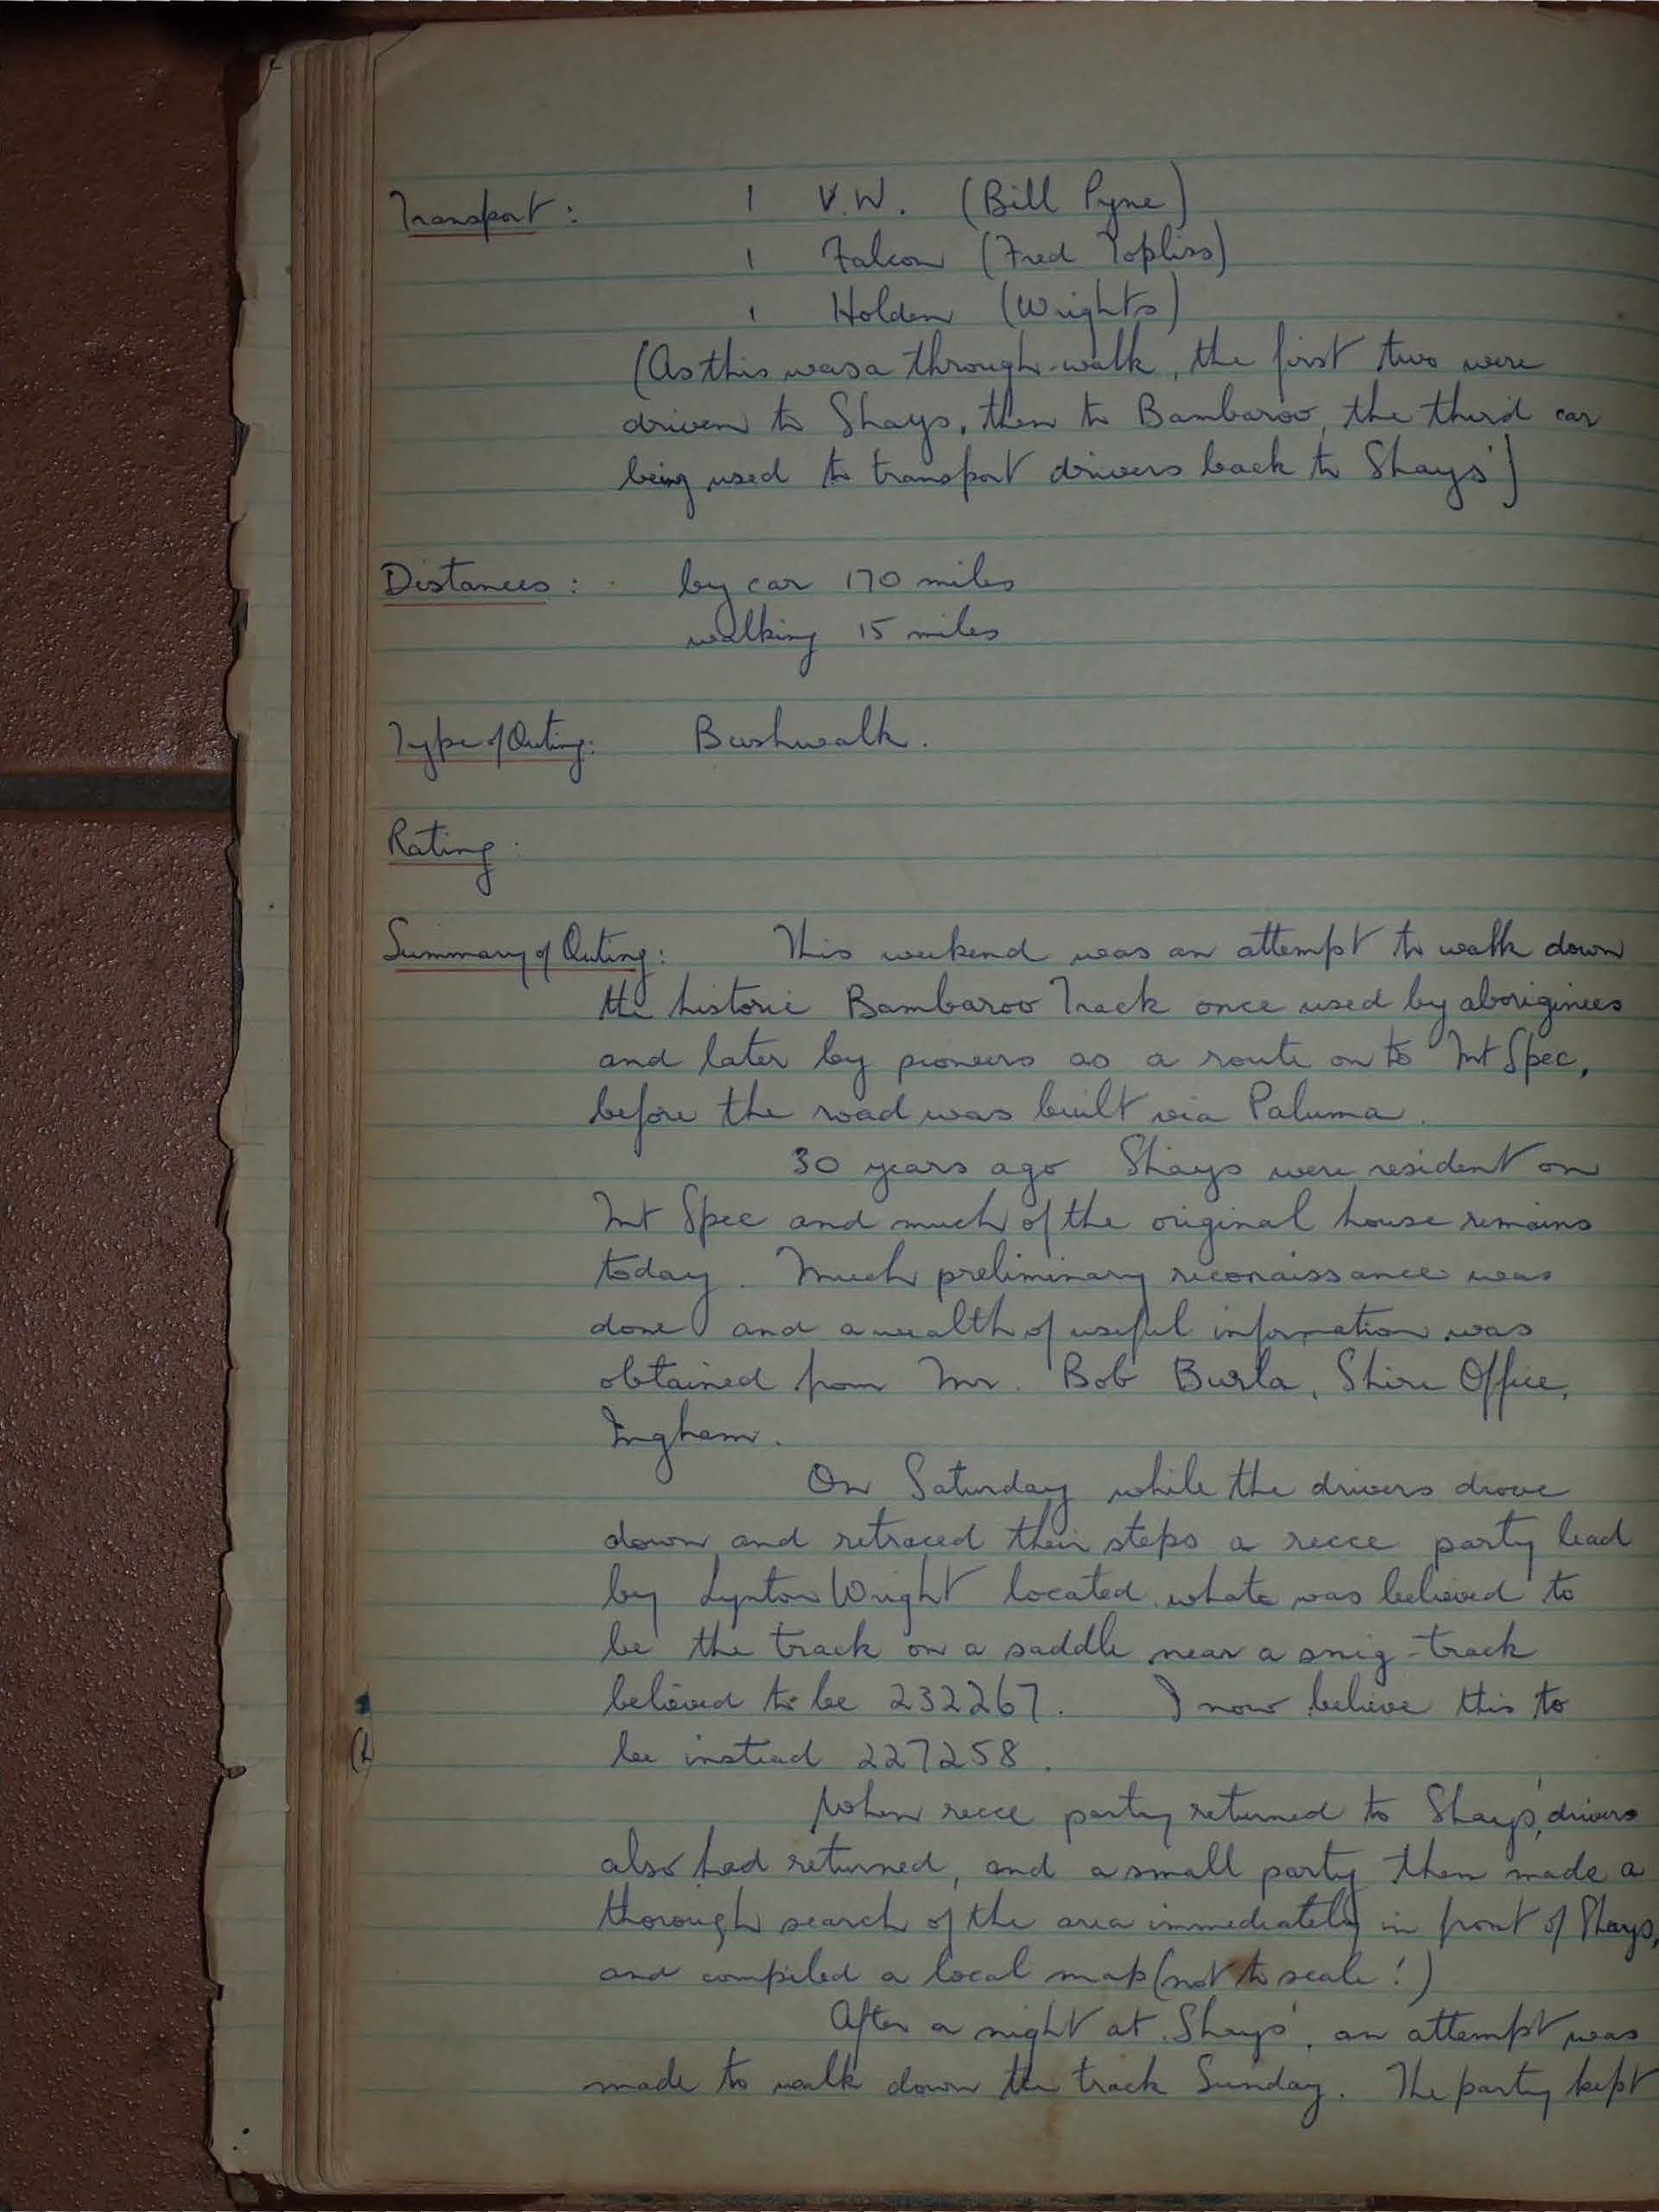 Transport: 1 V.W. (Bill Pyne)
1 Falcon (Fred Topliss)
1 Holden (Wrights)
(As this was a through-walk, the first two were
driven to Shays, then to Bambaroo, the third car
being used to transport drivers back to Shays')
Distances: by car 170 miles
walking 15 miles
Type of Outing: Bushwalk.
Rating:
Summary of Outing: This weekend was an attempt to walk down
the historic Bambaroo Track once used by aborigines
and later by pioneers as a route on to Mt Spec,
before the road was built via Paluma.
30 years ago Shays were resident on
Mt Spec and much of the original house remains
today. Much preliminary reconaissance was
done and a wealth of useful information was
obtained from Mr. Bob Burla, Shire Office,
Ingham.
On Saturday while the drivers drove
down and retraced their steps a recce party lead
by Lynton Wright located whate was believed to
be the track on a saddle near a snig-track
believed to be 232267. I now believe this to
be instead 227258.
When recce party returned to Shays', drivers
also had returned, and a small party then made a
thorough search of the area immediately in front of Shays,
and compiled a local map (not to scale!)
After a night at Shays', an attempt was
made to walk down the track Sunday. The party kept